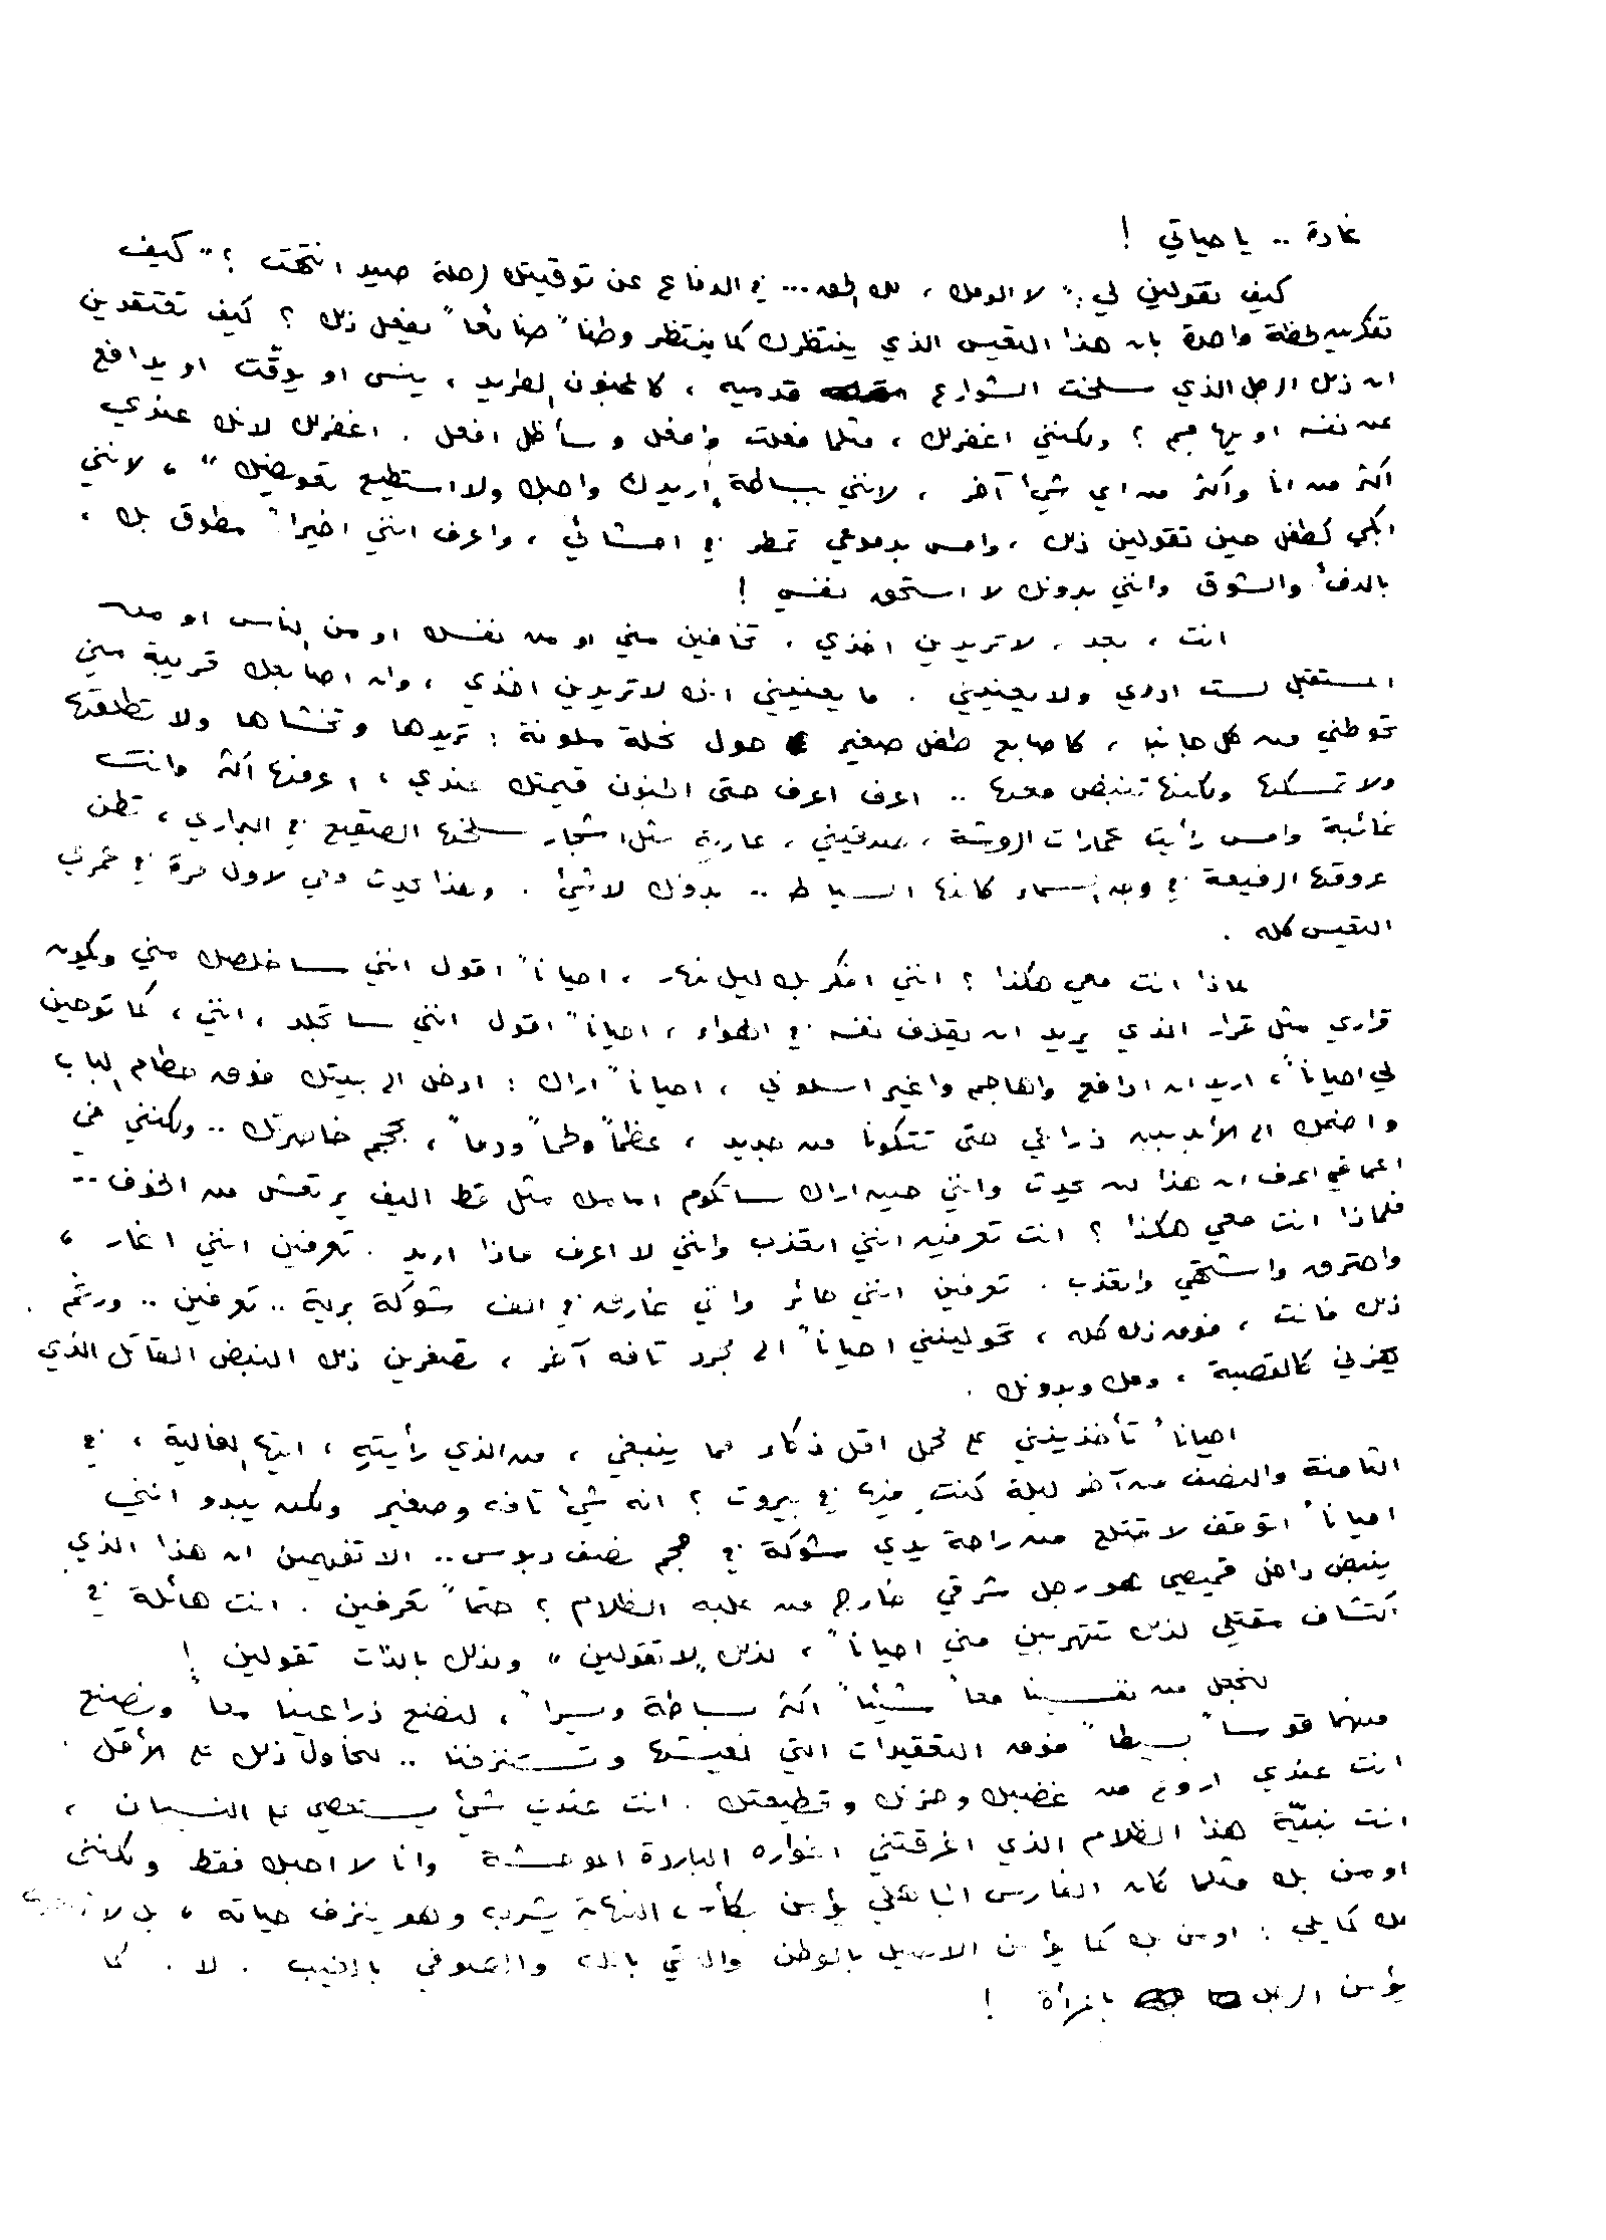 غادة .. يا حياتي !
كيف تقولين لي: " لا ألومك ، لك الحق ... في الدفاع عن توقيتك لرحلة صيد انتهت ؟ " كيف
تفكرين لحظة واحدة بان هذا التعيس الذي ينتظرك كما ينتظر وطنا" ضائعا" يفعل ذلك ؟ كيف تعتقدين
ان ذلك الرجل الذي سلخت الشوارع قدميه ، كالمجنون الطريد ، ينسى او يوقّت او يدافع
عن نفسه او يهاجم ؟ ولكنني اغفر لك ، مثلما فعلت وافعل وسأظل افعل . اغفر لك لانك عندي
اكثر من انا واكثر من اي شيء آخر ، لانني ببساطة " اريدك واحبك ولا استطيع تعويضك " ، لانني
ابكي كطفل حين تقولين ذلك ، واحس بدموعي تمطر في احشائي ، واعرف انني اخيرا" مطوق بك ،
بالدفء والشوق وانني بدونك لا استحق نفسي !
انت ، بعد ، لا تريدين اخذي ، تخافين مني او من نفسك او من الناس او من
المستقبل لست ادري ولا يعنيني . ما يعنيني انك لا تريدين اخذي ، وان اصابعك قريبة مني
تحوطني من كل جانب ، كاصابع طفل صغير حول نحلة ملونة : تريدها وتخشاها ولا تطلقها
ولا تمسكها ولكنها تنبض معها .. اعرف اعرف حتى الجنون قيمتك عندي ، اعرفها اكثر وانت
غائبة وامس رأيت عمارات الروشة ، صدقيني ، عارية مثل اشجار سلخها الصقيع في البراري ، تطن
عروقها الرفيعة في وجه السماء كانها السياط .. بدونك لا شيء . وهذا يحدث معي لاول مرة في عمري
التعيس كله .
لماذا انت معي هكذا ؟ انني افكر بك ليل نهار ، احيانا" اقول انني ساخلصك مني ويكون
قراري مثل قرار الذي يريد ان يقذف نفسه في الهواء ، احيانا" اقول انني ساتجلد ، انني ، كما توحين
لي احيانا" ، اريد ان ادافع واهاجم واغير اسلوبي ، احيانا" اراك : ادخل الى بيتك فوق حطام الباب
واضمك الى الأبد بين ذراعي حتى تتكونا من جديد ، عظما" ولحما" ودما" ، بحجم خاصرتك .. ولكنني في
اعماقي اعرف ان هذا لن يحدث وانني حين اراك ساتكوم امامك مثل قط اليف يرتعش من الخوف ..
فلماذا انت معي هكذا ؟ انت تعرفين انني اتعذب وانني لا اعرف ماذا اريد . تعرفين انني اغار ،
واحترق واشتهي واتعذب . تعرفين انني حائر واني غارق في الف شوكة برية .. تعرفين .. ورغم
ذلك فانت ، فوق ذلك كله ، تحولينني احيانا" الى مجرد تافه آخر ، تصغرين ذلك النبض القاتل الذي
يهزني كالقصبة ، معك وبدونك .
احيانا" تأخذينني على محمل اقل ذكاء مما ينبغي ، من الذي رأيته ، ايتها الغالية ، في
الثامنة والنصف من آخر ليلة كنت فيها في بيروت ؟ انه شيء تافه وصغير ولكن يبدو انني
احيانا" اتوقف لاقتلع من راحة يدي شوكة في حجم نصف دبوس .. الا تفهمين ان هذا الذي
ينبض داخل قميصي هو رجل شرقي خارج من علبة الظلام ؟ حتما" تعرفين . انت هائلة في
اكتشاف مقتلي لذلك تتهربين مني احيانا" ، لذلك " لا تقولين " ولذلك بالذات تقولين !
لنجعل من نفسينا معا" شيئا" اكثر بساطة ويسرا" ، لنضع ذراعينا معا" ونصنع
منهما قوسا" بسيطا" فوق التعقيدات التي نعيشها وتستنزفنا .. لنحاول ذلك على الأقل .
انت عندي اروع من غضبك وحزنك وقطيعتك . انت عندي شيء يستعصي على النسيان ،
انت نبيّة هذا الظلام الذي اغرقتني اغواره الباردة الموحشة وانا لا احبك فقط ولكنني
اومن بك مثلما كان الفارس الجاهلي يؤمن بكأس النهاية يشربه وهو ينزف حياته ، بل
لك كما يلي : اومن بك كما يؤمن الاصيل بالوطن والتقي بالله والصوفي بالغيب . لا . كما
يؤمن الرجل بالمرأة !